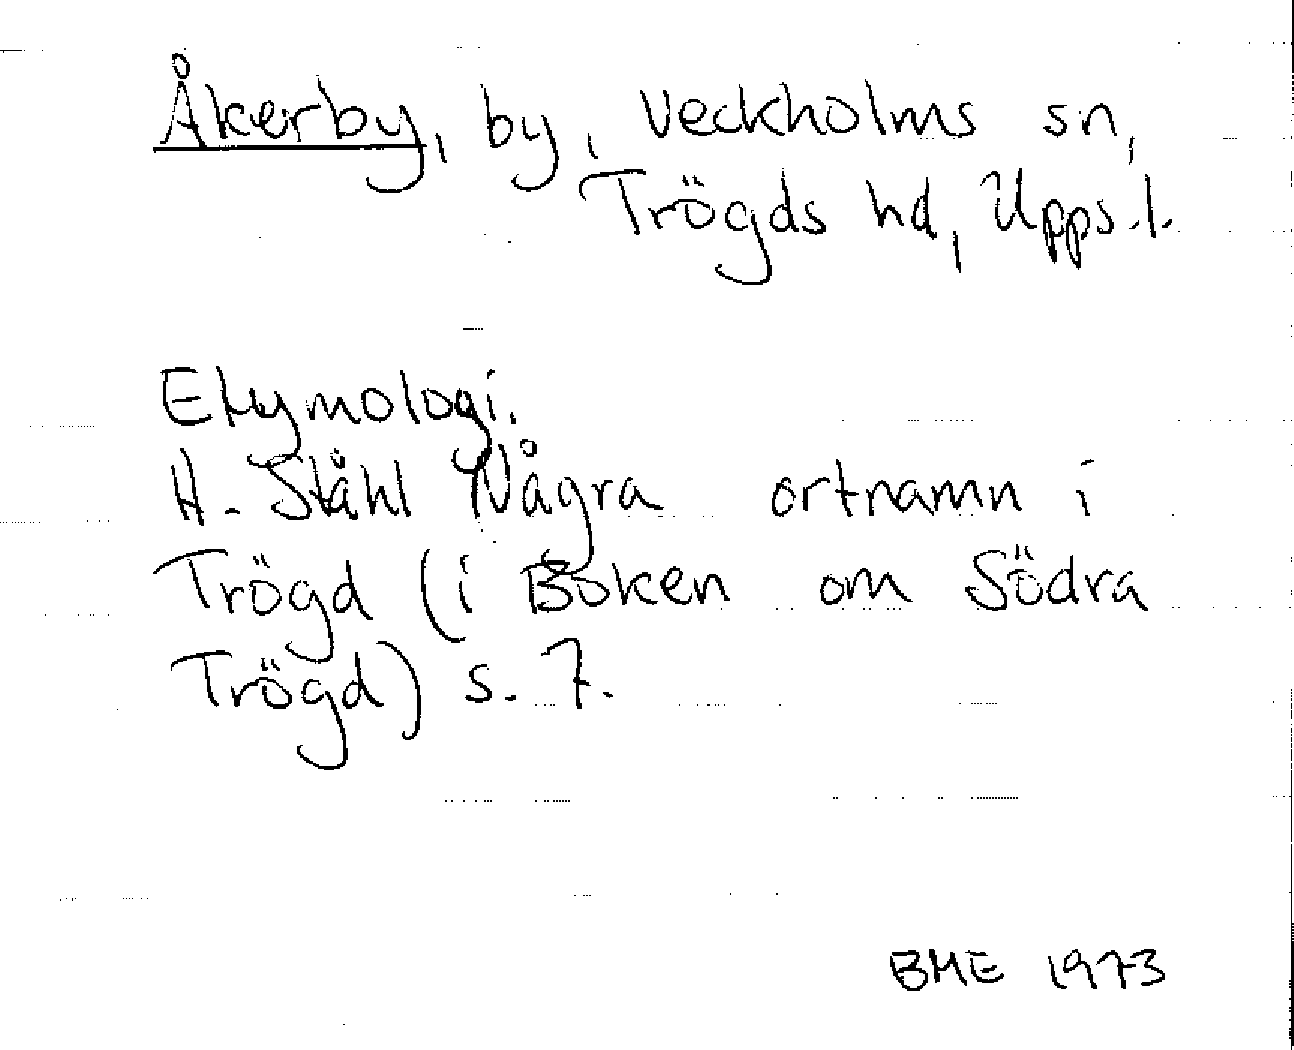 Åkerby, by, Veckholms sn,
Trögds hd, Upps.l.
Etymologi.
H. Ståhl Några ortnamn i
Trögd (i Boken om Södra
Trögd) s. 7.
BME 1973